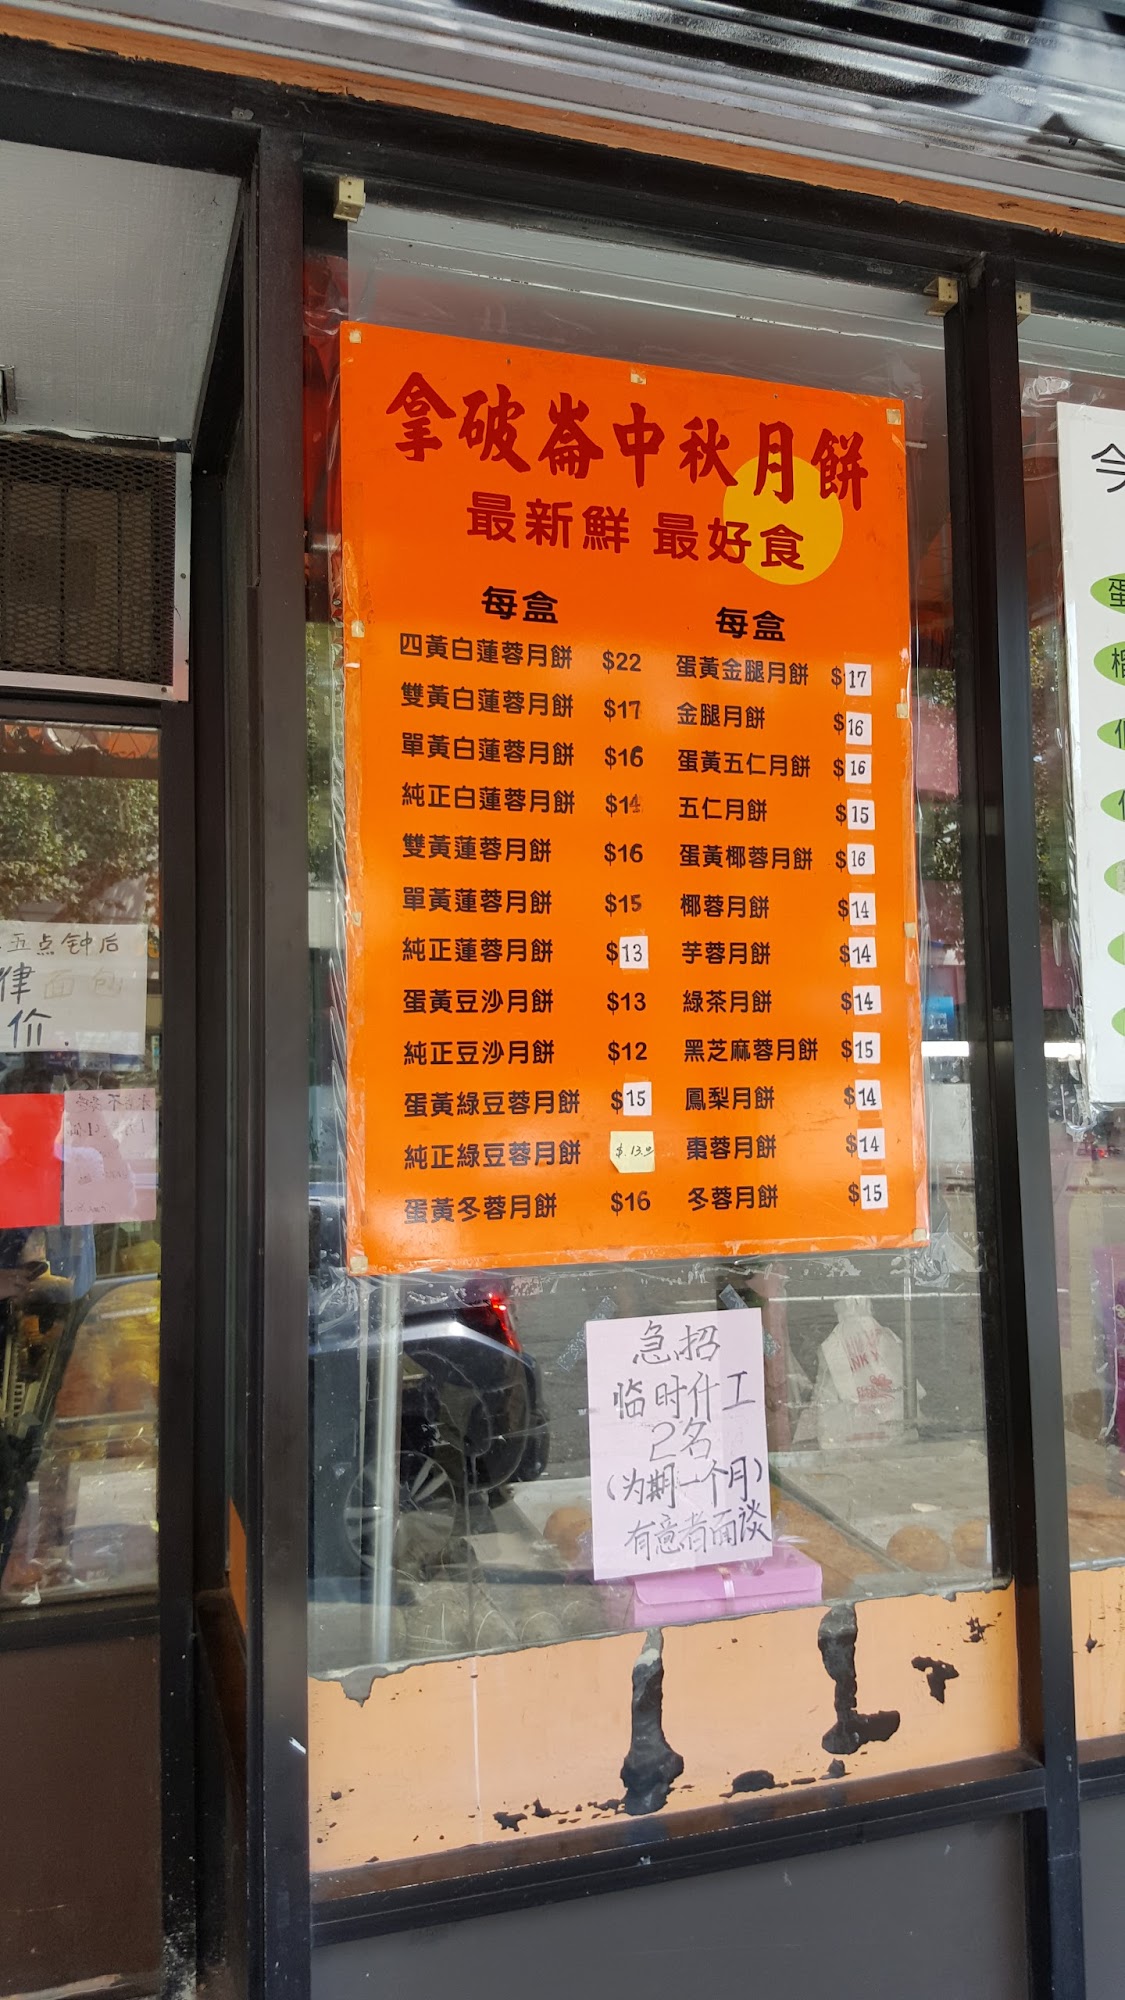 拿破崙中秋月餅
最新鮮 最好食
每盒
四黃白蓮蓉月餅 $22
雙黃白蓮蓉月餅 $17
單黃白蓮蓉月餅 $16
純正白蓮蓉月餅 $14
雙黃蓮蓉月餅 $16
單黃蓮蓉月餅 $15
純正蓮蓉月餅 $13
蛋黃豆沙月餅 $13
純正豆沙月餅 $12
蛋黃綠豆蓉月餅 $15
純正綠豆蓉月餅 $13.00
蛋黃冬蓉月餅 $16
每盒
蛋黃金腿月餅 $17
金腿月餅 $16
蛋黃五仁月餅 $16
五仁月餅 $15
蛋黃椰蓉月餅 $16
椰蓉月餅 $14
芋蓉月餅 $14
綠茶月餅 $14
黑芝麻蓉月餅 $15
鳳梨月餅 $14
棗蓉月餅 $14
冬蓉月餅 $15
急招
临时什工
2名
(为期一个月)
有意者面谈
五点钟后
律面包
价.
今
蛋